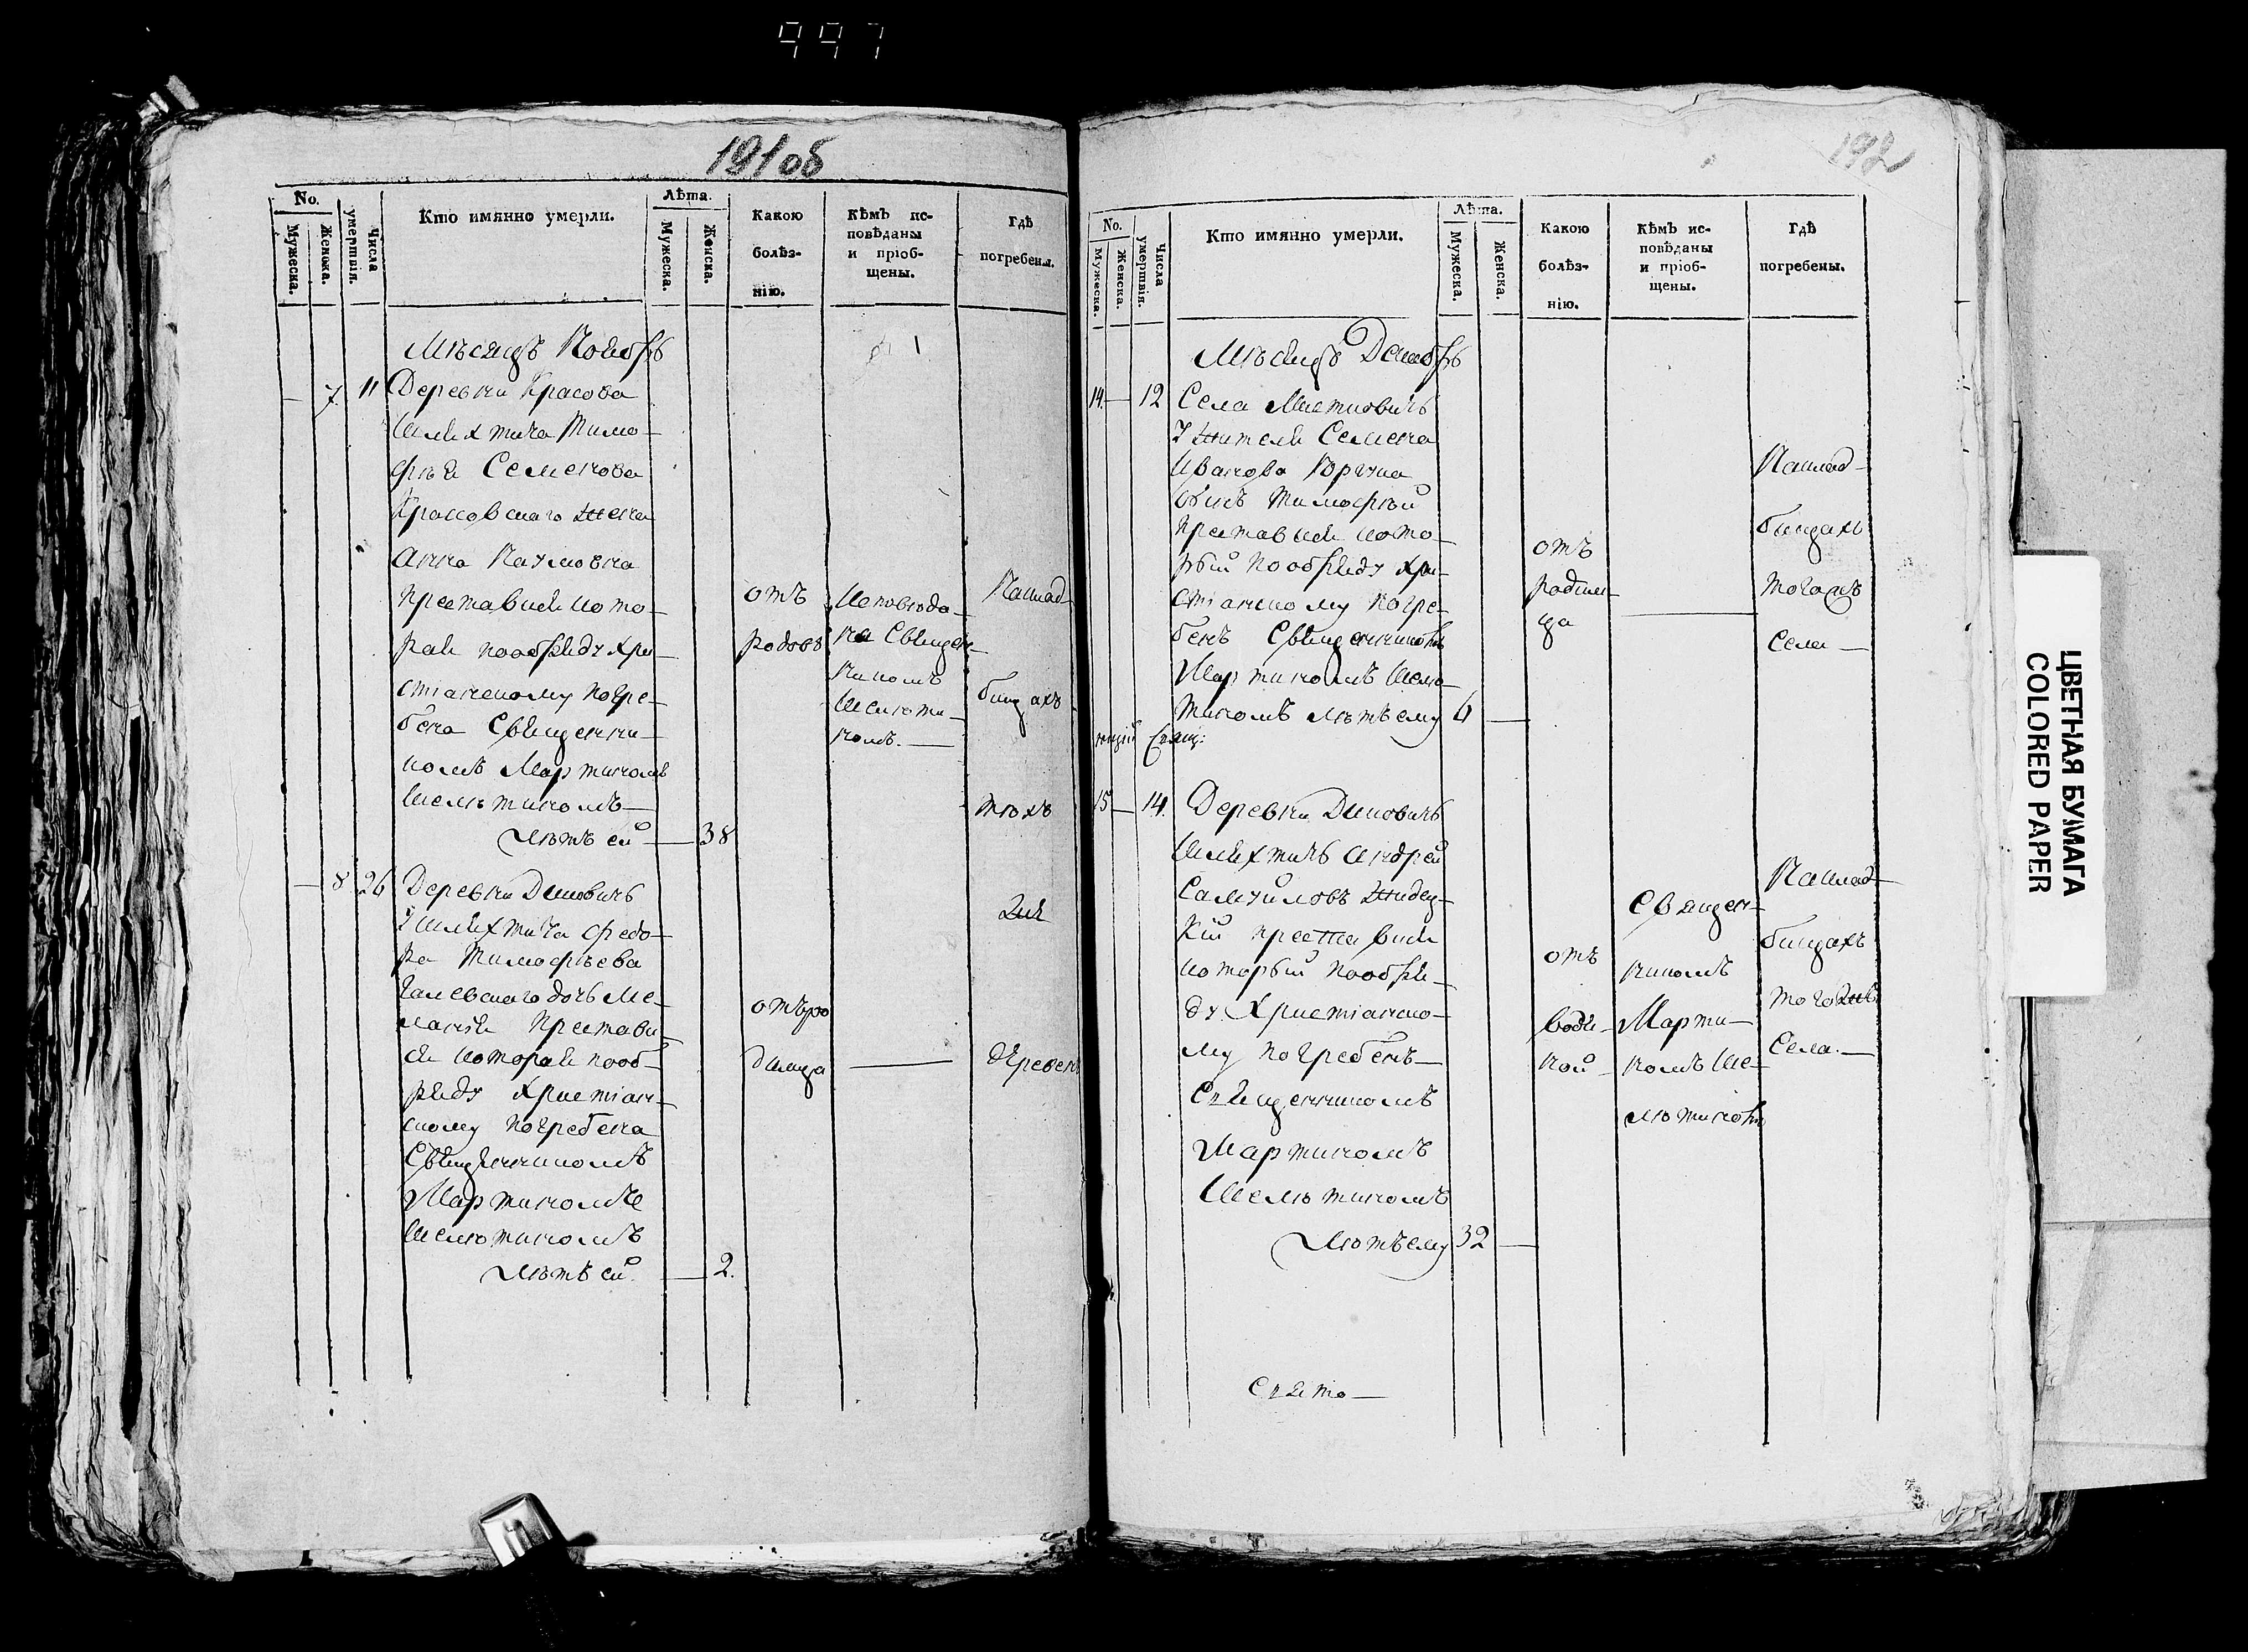 997
191об
No.
Мужеска.
Женска.
Числа умертвія.
Кто имянно умерли.
Лѣта.
Мужеска.
Женска.
Какою болѣз-
нію.
Кѣмъ ис-
повѣданы
и пріоб-
щены.
Гдѣ
погребены.
Мѣсяцъ Ноябрь
— 7. 11 Деревни Красова
Шляхтича Тимо-
фѣя Семенова
Красовскаго жена
Анна Наумовна
преставися кото-
рая пообряду Хри-
стіанскому погре-
бена Священни-
комъ Мартиномъ
Шелютиномъ —
Лѣтъ ей — 38
отъ
родовъ
Исповѣда-
на Священ-
никомъ
Шелюти-
номъ. —
На клад-
бищахъ
тѣхъ
же
деревень
— 8 26 Деревни Дыновичь
Шляхтича Федо-
ра Тимофѣева
дочь Ме-
ланія Престави-
ся которая пооб-
ряду Христіан-
скому погребена
Священникомъ
Мартиномъ
Шелютиномъ
Лѣтъ ей. — 2.
отъ ро
димца
—
192
No.
Мужеска.
Женска.
Числа умертвія.
Кто имянно умерли.
Лѣта.
Мужеска.
Женска.
Какою
болѣз-
нію.
Кѣмъ ис-
повѣданы
и пріоб-
щены.
Гдѣ
погребены.
Мѣсяцъ Декабрь
14. — 12 Села
Жителя Семена
Иванова
сынъ Тимофѣй
преставися кото-
рый пообряду Хри-
стіанскому погре-
бенъ Священникомъ
Мартиномъ Шелю-
тиномъ лѣтъ ему 6 —
отъ
родим-
ца
—
На клад-
бищахъ
тогожъ
Села —
Свящ:
15 — 14. Деревни Дыновичь
Шляхтичь Андрей
Самуиловъ
кій преставися
который пообря-
ду Христіанско-
му погребенъ —
Священникомъ
Мартиномъ
Шелютиномъ
Лѣтъ ему 32 —
отъ
водя-
ной
Священ-
никомъ
Марти-
номъ Ше-
лютиномъ
На клад-
бищахъ
того же
Села. —
ЦВЕТНАЯ БУМАГА
COLORED PAPER